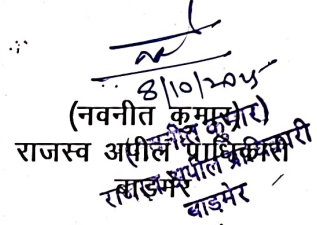 8/10/2025
(नवनीत कुमार)
राजस्व अपील प्राधिकारी
बाड़मेर
(नवनीत कुमार)
राजस्व अपील प्राधिकारी
बाड़मेर